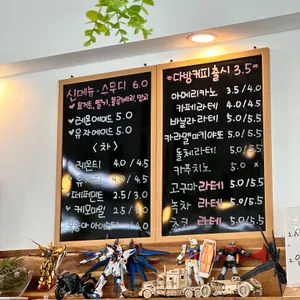 신메뉴·스무디 6.0
요거트, 딸기, 블루베리, 망고
레몬에이드 5.0
유자에이드 5.0
<차>
레몬티 4.0/4.5
4.0/4.5
페퍼민트 2.5/3.0
케모마일 2.5/3.0
*다방커피출시 3.5*
아메리카노 3.5/4.0
카페라테 4.0/4.5
바닐라라테 4.5/5.0
카라멜마키아토 5.0/5.5
돌체라테 5.0/5.5
카푸치노 5.0 ×
고구마라테 5.0/5.5
녹차라테 5.0/5.5
초코라테 5.0/5.5